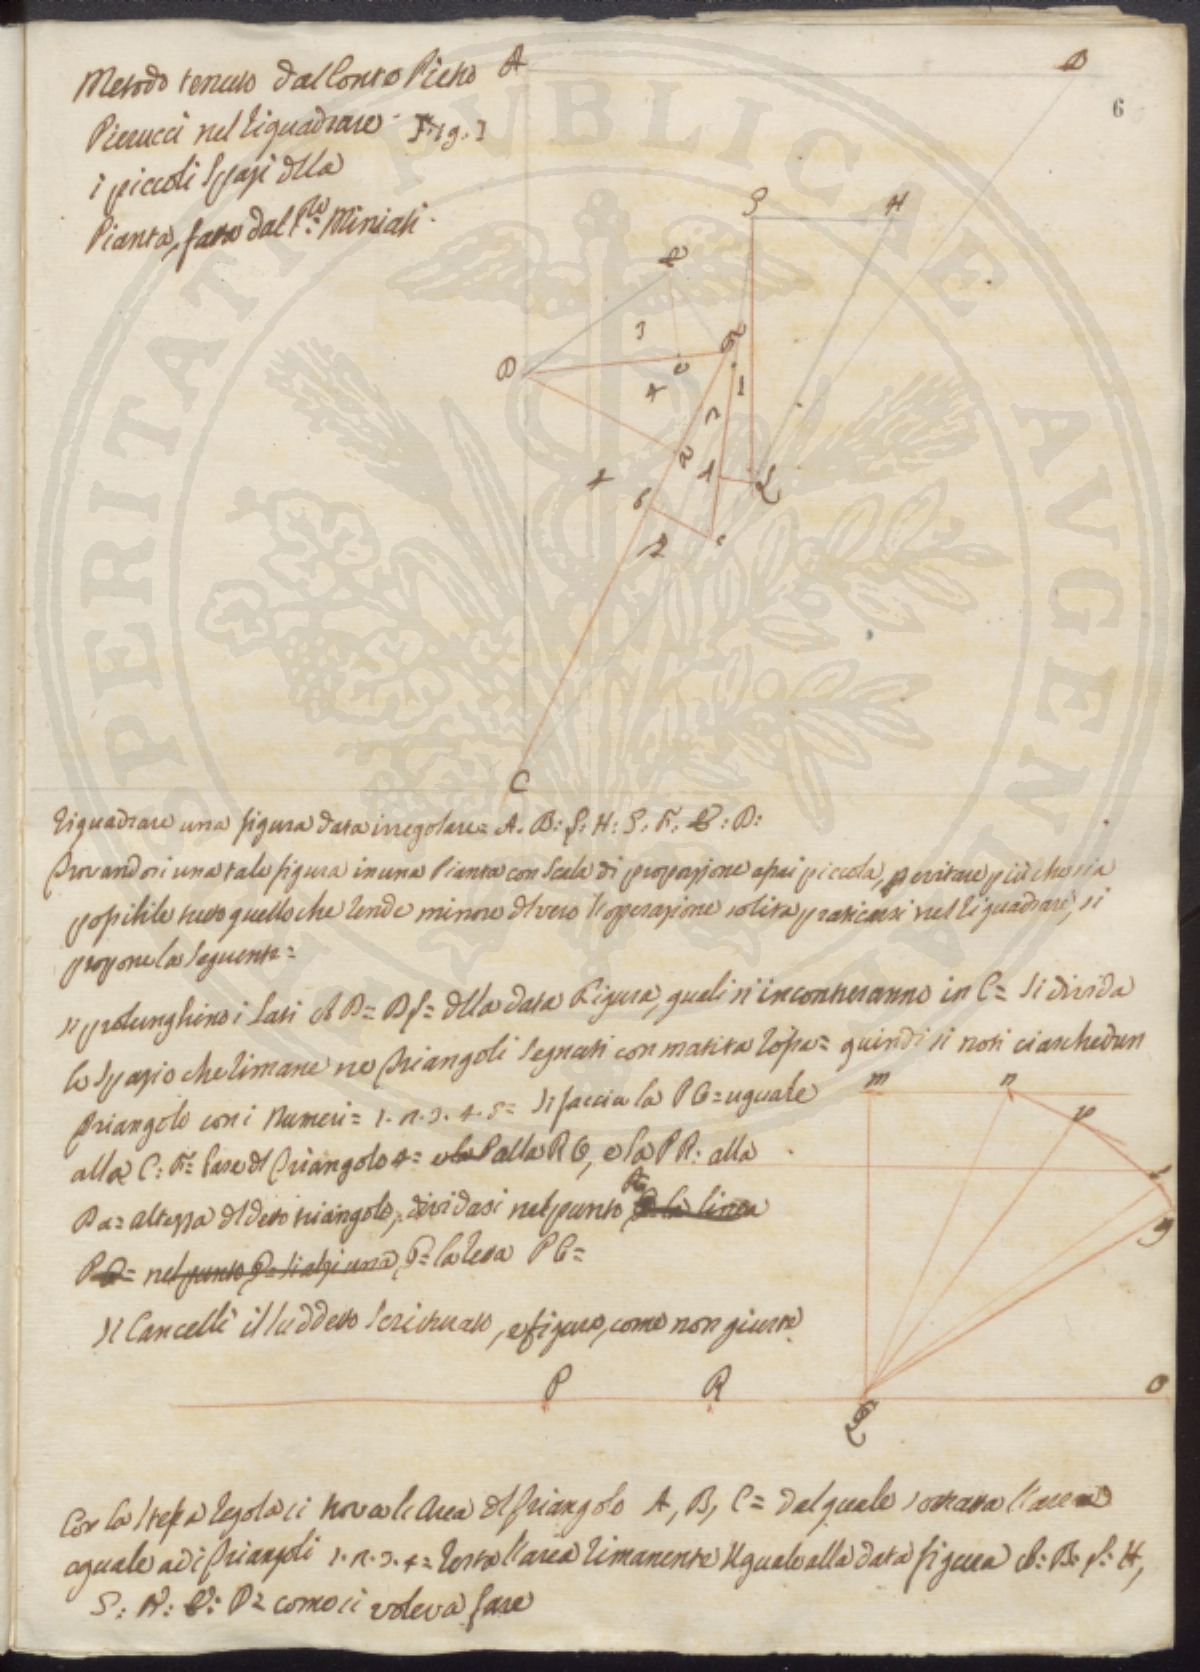 Metodo tenuto dal Conte Pietro
Pierucci nel riquadrare Fig. 1
i piccoli Spazi della
Pianta, fatta dal Miniati.
6
A
B
S
H
E
D
F
3
4
1
2
C
Riquadrare una figura data irregolare = A. B: H: S. F. E: D:
Trovandosi una tale figura in una Pianta con Scala di proporzione assai piccola, p evitare più che sia
possibile tutto quello che rende minore del vero l'operazione solita praticarsi nel riquadrare, si
propone la Seguente =
Si prolunghino i Lati AD = della data Figura, quali si incontreranno in C = Si divida
lo Spazio che rimane ne Triangoli Segnati con matita rossa = quindi si noti ciaschedun
Triangolo con i Numeri = 1. 2. 3. 4. 5 = Si faccia la = uguale
alla C: F = base del Triangolo 4 = alla e la PR: alla
Da = altezza del detto triangolo, dividasi nel punto la linea
nel punto la retta
Si Cancelli il Suddetto Scritturato, e figure, come non giuste
m
n
P
R
Q
O
Con la Stessa Regola si trova l'Area del Triangolo A, B, C = dal quale sottratta l'area
eguale ad i Triangoli 1. 2. 3. 4 = resta l'area rimanente Uguale alla data figura A: B: H,
S: F: E: D = come si voleva fare
PUBLICAE
PERITATI
AVGEN